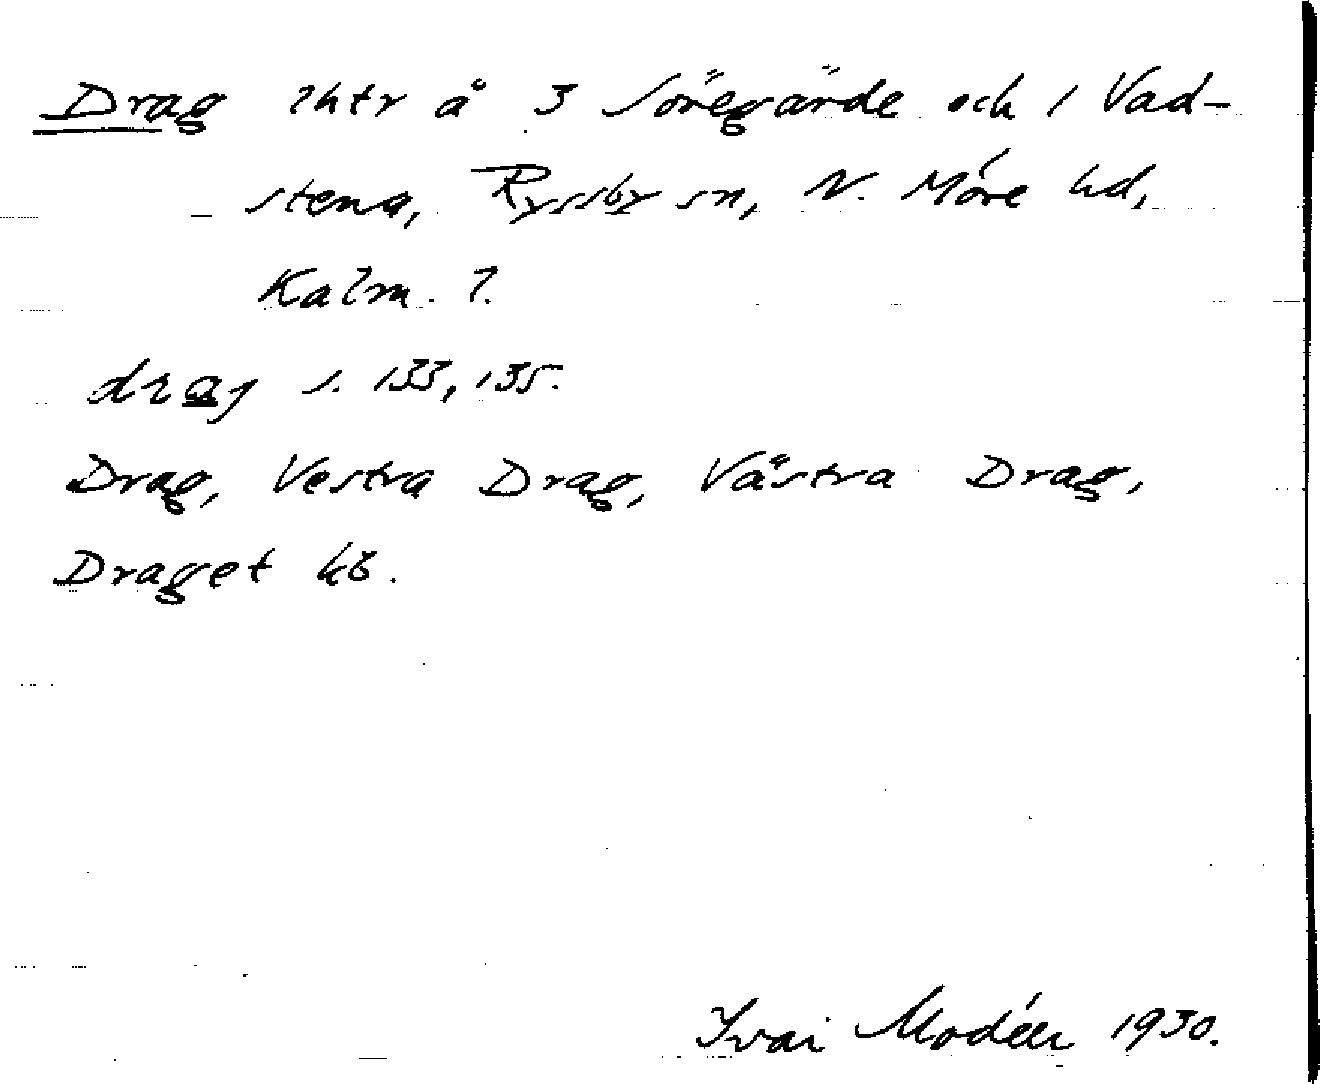 Drag lhtr å 3 Söregärde och 1 Vad-
stena, Ryssby sn, N. Möre hd,
Kalm. l.
drag s. 133, 135.
Drag, Vestra Drag, Västra Drag,
Draget kb.
Ivar Modéer 1930.